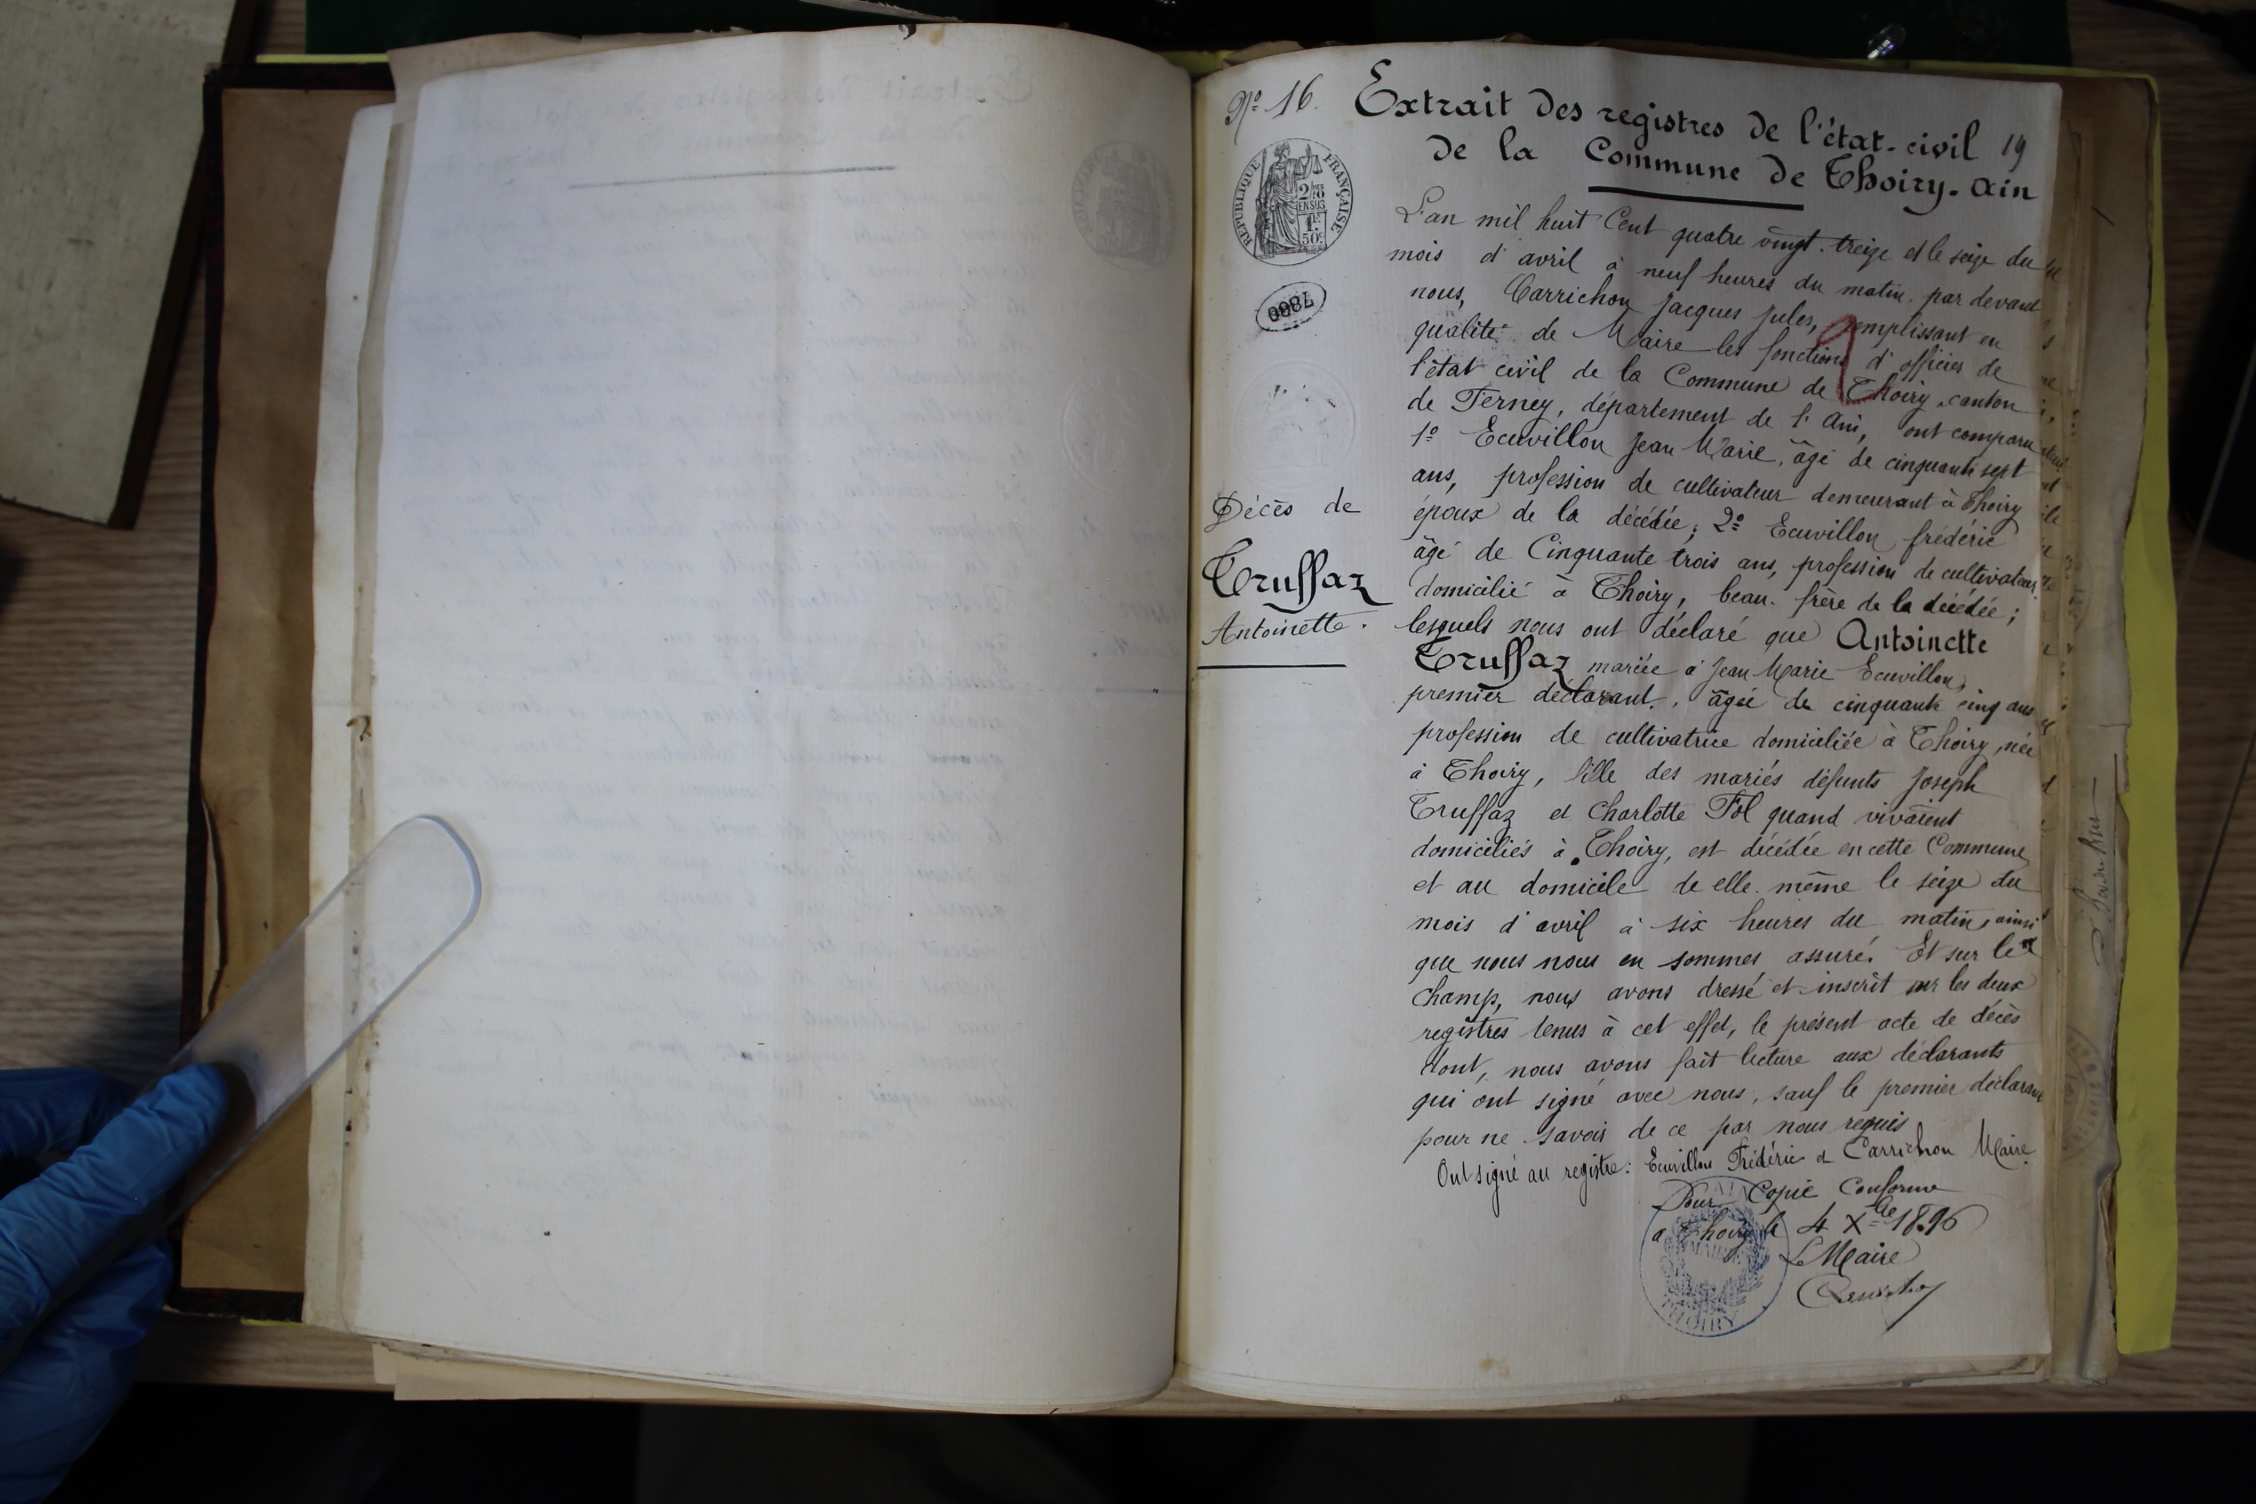 Nº 16.
Extrait des registres de l'état-civil 19
de la Commune de Thoiry-Ain
RÉPUBLIQUE FRANÇAISE
2/10
EN SUS
1F.
50c
7880
L'an mil huit Cent quatre vingt-treize et le seize du
mois d'avril à neuf heures du matin par devant
nous, Carrichon Jacques Jules, remplissant en
qualité de Maire les fonctions d'officier de
l'état civil de la Commune de Thoiry, canton
de Ferney, département de l'Ain, ont comparu
1º Ecuvillon Jean Marie, âgé de cinquante sept
ans, profession de cultivateur demeurant à Thoiry
époux de la décédée; 2º Ecuvillon frédéric
âgé de Cinquante trois ans, profession de cultivateur
domicilié à Thoiry, beau-frère de la décédée;
lesquels nous ont déclaré que Antoinette
Truffaz mariée à Jean Marie Ecuvillon,
premier déclarant, âgée de cinquante cinq ans
profession de cultivatrice domiciliée à Thoiry, née
à Thoiry, fille des mariés défunts Joseph
Truffaz et Charlotte Fol quand vivaient
domiciliés à Thoiry, est décédée en cette Commune
et au domicile de elle-même le seize du
mois d'avril à six heures du matin, ainsi
que nous nous en sommes assuré. Et sur le
champ, nous avons dressé et inscrit sur les deux
registres tenus à cet effet, le présent acte de décès
dont, nous avons fait lecture aux déclarants
qui ont signé avec nous, sauf le premier déclarant
pour ne savoir de ce par nous requis
Ont signé au registre: Ecuvillon Frédéric et Carrichon Maire
Pour Copie Conforme
à Thoiry le 4 Xbre 1896
Le Maire
Carrichon
MAIRIE
THOIRY
Décès de
Truffaz
Antoinette.